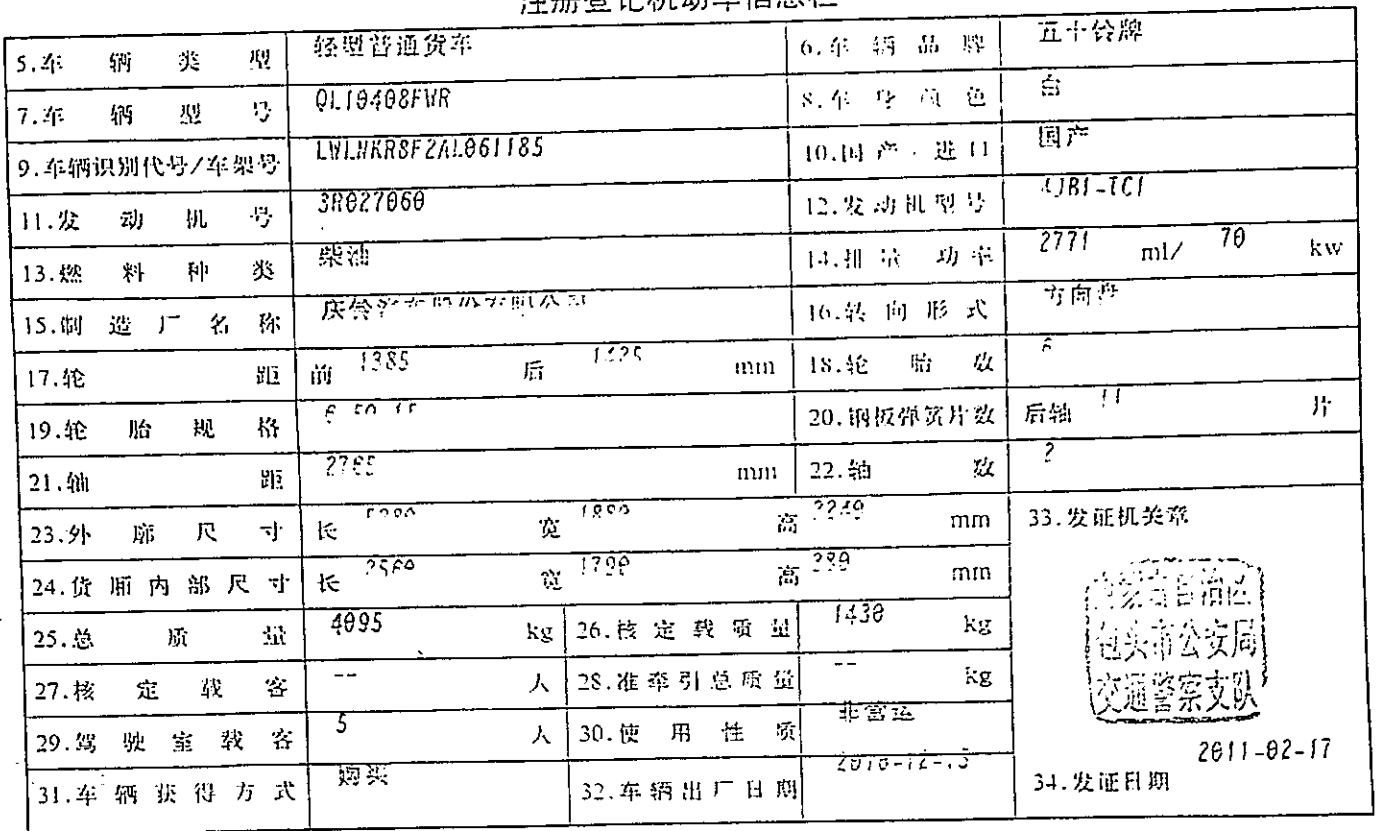 注册登记机动车信息栏
5.车辆类型 轻型普通货车 6.车辆品牌 五十铃牌
7.车辆型号 QL10408FWR 8.车身颜色 白
9.车辆识别代号/车架号 LWLNKR8F2AL061185 10.国产/进口 国产
11.发动机号 3R027060 12.发动机型号
13.燃料种类 柴油 14.排量/功率 2771 ml/ 70 kw
15.制造厂名称 庆铃汽车股份有限公司 16.转向形式 方向盘
17.轮距 前 1385 后 1425 mm 18.轮胎数 6
19.轮胎规格 20.钢板弹簧片数 后轴 片
21.轴距 2765 mm 22.轴数 2
23.外廓尺寸 长 宽 高 mm 33.发证机关章
24.货厢内部尺寸 长 宽 高 mm
内蒙古自治区
包头市公安局
交通警察支队
25.总质量 4095 kg 26.核定载质量 1430 kg
27.核定载客 -- 人 28.准牵引总质量 -- kg
29.驾驶室载客 5 人 30.使用性质 非营运
31.车辆获得方式 购买 32.车辆出厂日期 34.发证日期 2011-02-17